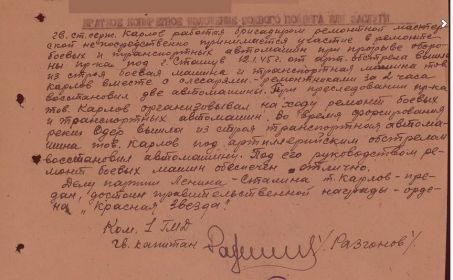 КРАТКОЕ КОНКРЕТНОЕ ИЗЛОЖЕНИЕ БОЕВОГО ПОДВИГА ИЛИ ЗАСЛУГИ
гв. ст. серж. Карлов работая бригадиром ремонтной мастер-
ской непосредственно принимается участие в ремонте
боевых и транспортных автомашин при прорыве оборо-
ны пр-ка под г. Сташув 12.1.45г. от арт. обстрела вышли
из строя боевая машина и транспортная машина тов.
Карлов вместе с слесарями-ремонтниками за 2 часа
восстановил две автомашины. При преследовании пр-ка
тов. Карлов организовывал на ходу ремонт боевых
и транспортных автомашин. Во время форсирования
реки Одер вышла из строя транспортная автома-
шина тов. Карлов под артиллерийским обстрелом
восстановил автомашину. Под его руководством ре-
монт боевых машин обеспечен отлично.
Делу партии Ленина-Сталина т. Карлов-пре-
дан, достоин правительственной награды-орде-
на "Красная Звезда".
Ком. 1 ПМД
гв. капитан /Разгонов/